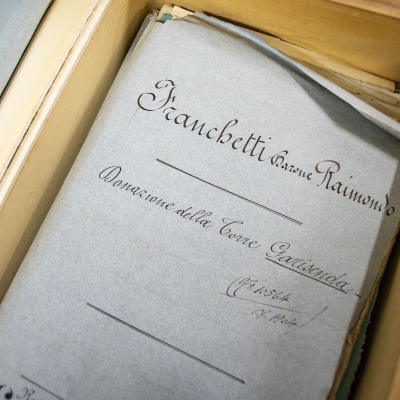 Franchetti Barone Raimondo
Donazione della Torre Garisenda
10564